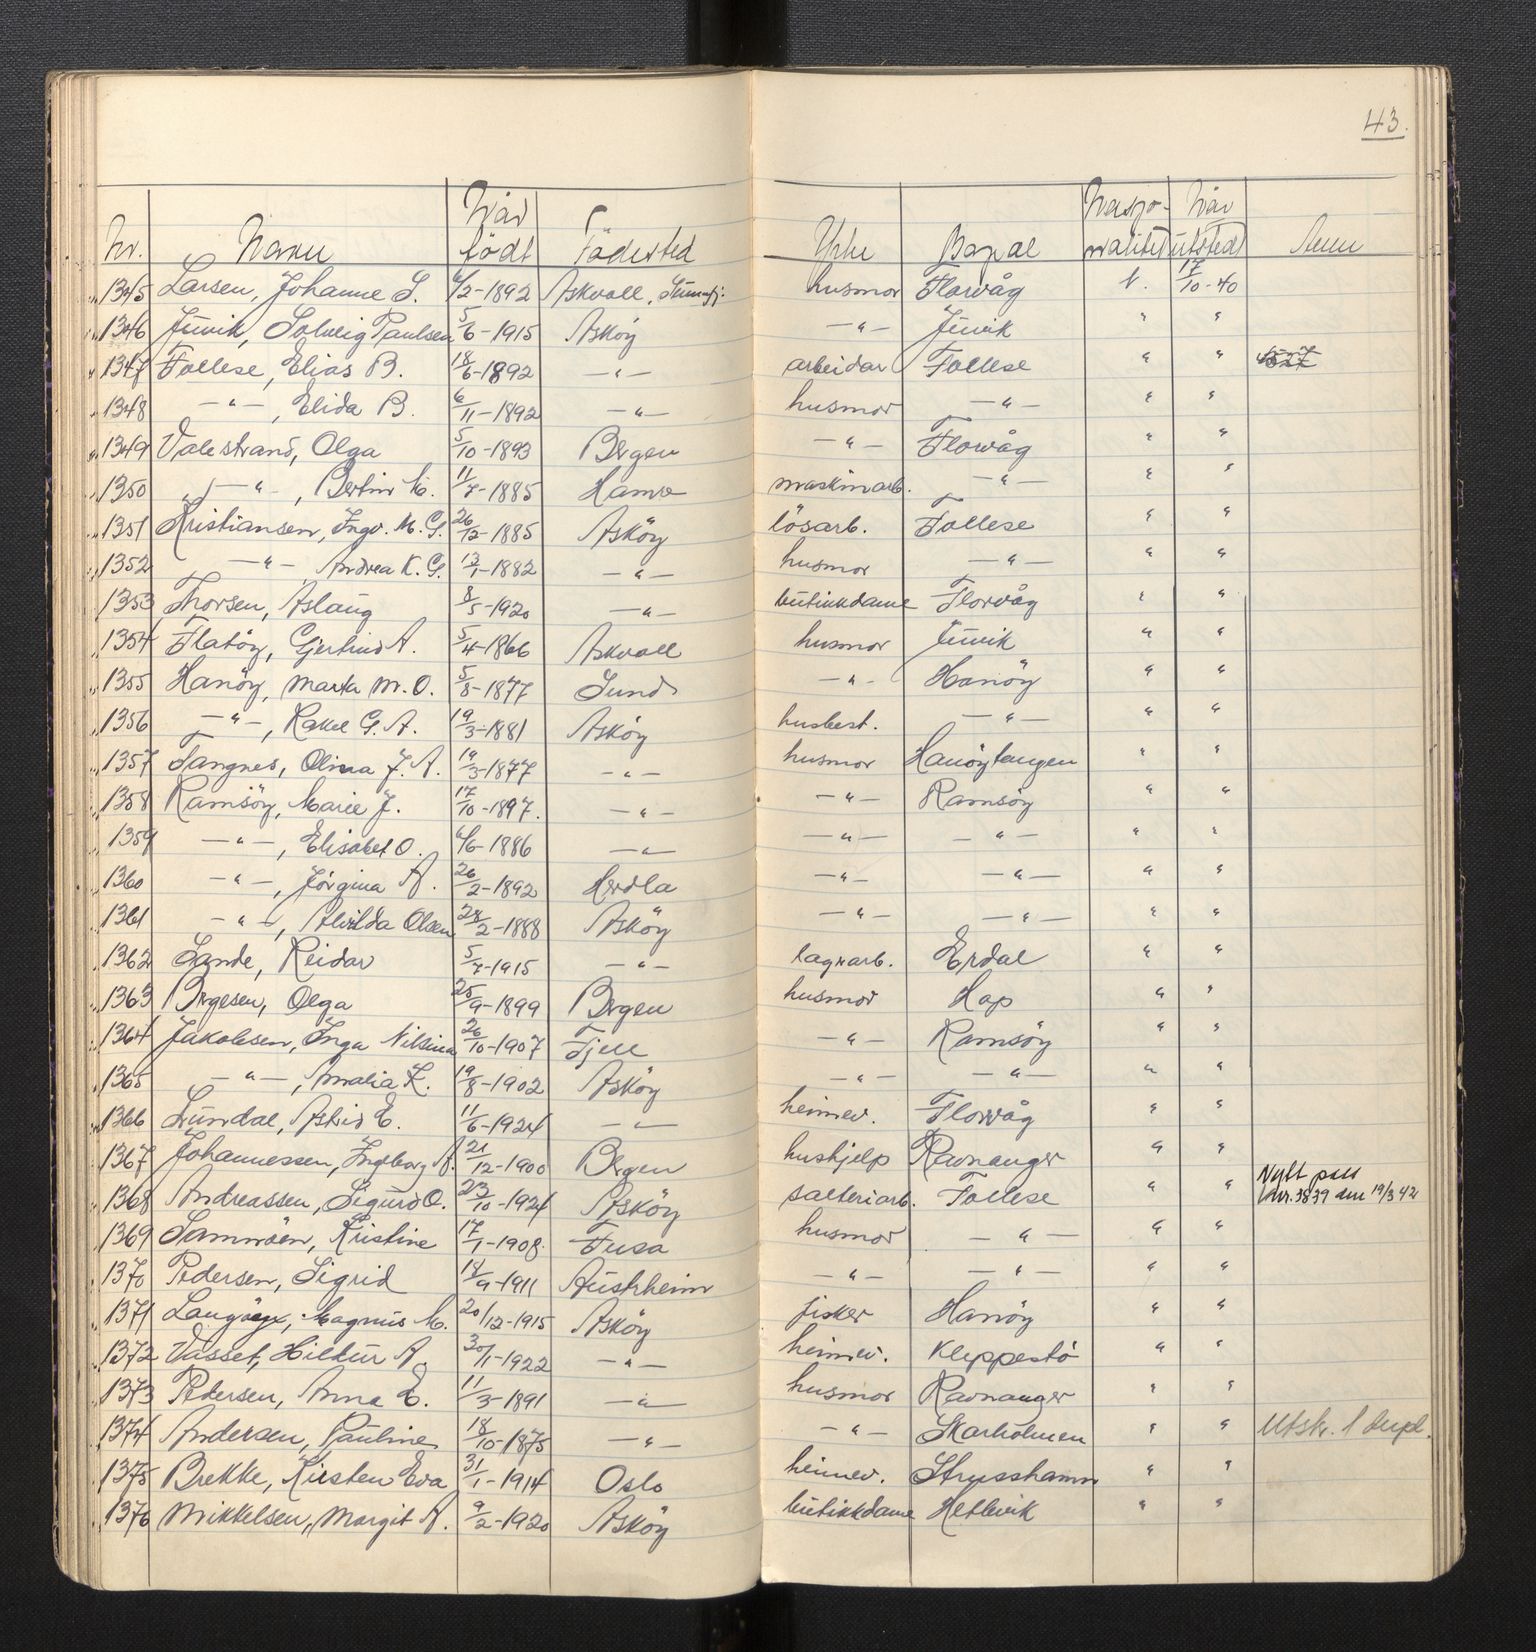 43.
Nr. Namn Når födt Födested Yrke Bopal Nasjonalitet Når utstedt Anm
1345 Larsen, Johanne S. 6/2-1892 Askvoll, husmor Florvåg N. 17/10-40
1346 Juvik, Solveig Paulsen 5/6-1915 Asköy -"- Juvik " "
1347 Follese, Elias B. 18/6-1892 -"- arbeidar Follese " "
1348 -"-, Elida B. 6/11-1892 -"- husmor -"- " "
1349 Valestrand, Olga 5/10-1893 Bergen -"- Florvåg " "
1350 -"-, Bertin M. 11/7-1885 Hamre maskinarb. -"- " "
1351 Kristiansen, Ingv. M. G. 26/12-1885 Asköy lösarb. Follese " "
1352 -"- Andrea K. G. 13/1-1882 -"- husmor -"- " "
1353 Thorsen, Aslaug 8/5-1920 -"- butikkdame Florvåg " "
1354 Flatöy, Gjertrud A. 5/4-1866 Askvoll husmor Juvik " "
1355 Hanöy, Marta M. O. 5/8-1877 Sund -"- Hanöy " "
1356 -"-, Rakel G. A. 19/3-1881 Asköy husbest. -"- " "
1357 Tangnes, Olina J. A. 19/3-1877 -"- husmor Hanöytangen " "
1358 Ramsöy, Marie J. 17/10-1897. -"- -"- Ramsöy " "
1359 -"-, Elisabet O. 6/6-1886 -"- -"- -"- " "
1360 -"-, Jörgina A. 26/2-1892 Herdla -"- -"- " "
1361 -"-, Alvilda Olsen 28/2-1888 Asköy -"- -"- " "
1362 Lande, Reidar 5/7-1915 -"- lagerarb. Erdal " "
1363 Bergesen, Olga 25/9-1899 Bergen husmor Hop " "
1364 Jakobsen, Inga Nilsina 26/10-1907 Fjell -"- Ramsöy " "
1365 -"-, Amalia K. 19/8-1902 Asköy -"- -"- " "
1366 Lundal, Astrid E. 11/6-1924 -"- heimev. Florvåg " "
1367 Johannessen, Ingeborg A. 21/12-1900 Bergen hushjelp Ravnanger " "
1368 Andreassen, Sigurd O. 23/10-1924 Asköy salteriarb. Follese " " Nytt pass nr. 3839 den 19/3 42
1369 Samnöen, Kristine 17/1-1908. Fusa husmor -"- " "
1370 Pedersen, Sigrid 18/9-1911 Austrheim -"- -"- " "
1371 Langöy, Magnus M. 20/12-1915 Asköy fisker Hanöy " "
1372 Vasset, Hildur A. 30/1-1922 -"- heimev. Kleppestö " "
1373 Pedersen, Anna E. 11/3-1891 -"- husmor Ravnanger " "
1374 Andersen, Pauline 18/10-1875 -"- -"- Skarholmen " " Utskr. 1 dupl.
1375 Brekke, Kirsten Eva 31/1-1914 Oslo heimev. Strusshamn " "
1376 Mikkelsen, Margit A. 9/2-1920 Asköy butikkdame Hetlevik " "